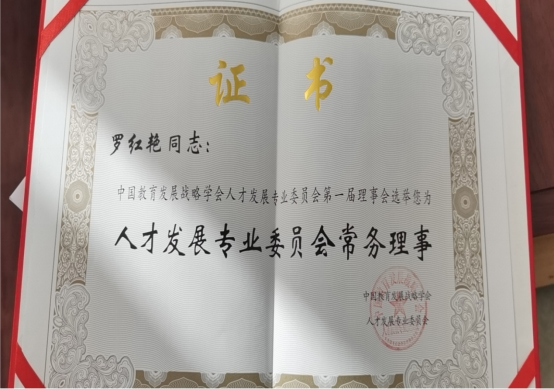 证书
罗红艳同志：
中国教育发展战略学会人才发展专业委员会第一届理事会选举您为
人才发展专业委员会常务理事
中国教育发展战略学会
人才发展专业委员会